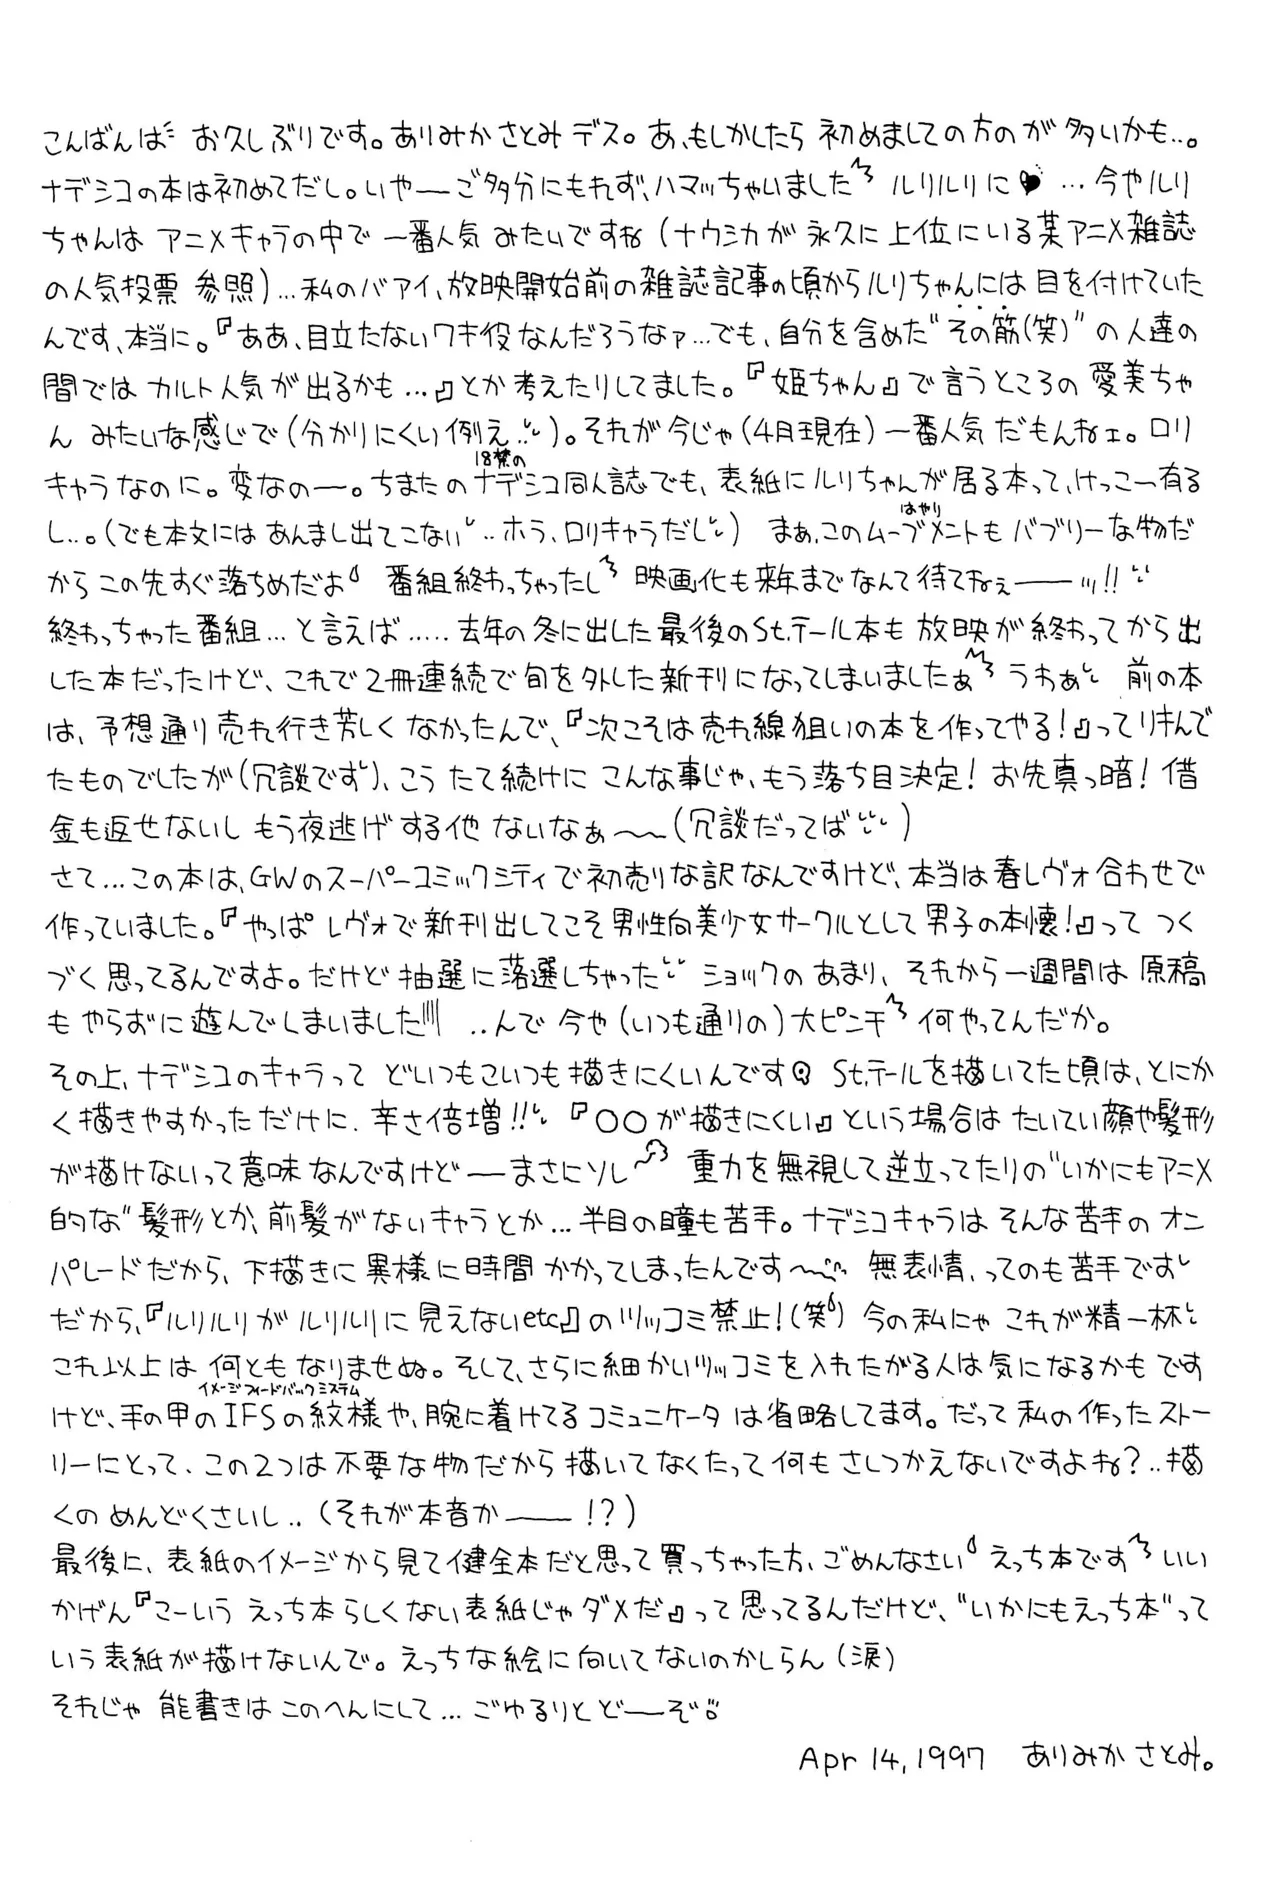 こんばんは お久しぶりです。ありみかさとみデス。あ、もしかしたら 初めましての方のが多いかも…。
ナデシコの本は初めてだし。いや――ご多分にもれず、ハマッちゃいました ルリルリに♥ …今やルリ
ちゃんは アニメキャラの中で 一番人気 みたいですね（ナウシカが 永久に上位にいる某アニメ雑誌
の人気投票 参照）…私のバアイ、放映開始前の雑誌記事の頃からルリちゃんには 目を付けていた
んです、本当に。『ああ、目立たないワキ役なんだろうなァ…でも、自分を含めた“その筋(笑)”の人達の
間では カルト人気が出るかも…』とか考えたりしてました。『姫ちゃん』で言うところの 愛美ちゃ
ん みたいな感じで（分かりにくい例え…）。それが今じゃ（4月現在）一番人気だもんねェ。ロリ
18禁の
キャラなのに。変なの―。ちまたのナデシコ同人誌でも、表紙にルリちゃんが居る本って、けっこー有る
はやり
し…。（でも本文にはあんまし出てこない‥ホラ、ロリキャラだし） まぁ、このムーブメントも バブリーな物だ
からこの先すぐ落ちめだよ 番組終わっちゃったし 映画化も来年までなんて待てねぇ――ッ!!
終わっちゃった番組…と言えば…‥去年の冬に出した最後のSt.テール本も 放映が終わってから出
した本だったけど、これで2冊連続で旬を外した新刊になってしまいましたぁ うわぁ 前の本
は、予想通り売れ行き芳しくなかったんで、『次こそは売れ線狙いの本を作ってやる！』ってりきんで
たものでしたが（冗談です）、こう たて続けに こんな事じゃ、もう落ち目決定！お先真っ暗！借
金も返せないし もう夜逃げする他 ないなぁ～（冗談だってば）
さて…この本は、GWのスーパーコミックシティで初売りな訳なんですけど、本当は春レヴォ合わせで
作っていました。『やっぱ レヴォで新刊出してこそ男性向美少女サークルとして男子の本懐！』って つく
づく思ってるんですよ。だけど 抽選に落選しちゃった ショックのあまり、それから一週間は 原稿
も やらずに遊んでしまいました ‥んで 今や（いつも通りの）大ピンチ 何やってんだか。
その上、ナデシコのキャラって どいつもこいつも描きにくいんです St.テールを描いてた頃は、とにか
く描きやすかっただけに、辛さ倍増!! 『○○が描きにくい』という場合は たいてい顔や髪形
が描けないって意味なんですけど――まさにソレ 重力を無視して逆立ってたりの“いかにもアニメ
的な”髪形とか、前髪がないキャラとか…半目の瞳も苦手。ナデシコキャラは そんな苦手のオン
パレードだから、下描きに異様に時間かかってしまったんです～ 無表情、ってのも苦手です
だから、『ルリルリがルリルリに見えないetc』のツッコミ禁止！(笑) 今の私にゃ これが精一杯
これ以上は 何ともなりませぬ。そして、さらに細かいツッコミを入れたがる人は気になるかもです
イメージフィードバックシステム
けど、手の甲のIFSの紋様や、腕に着けてるコミュニケータは省略してます。だって私の作ったストー
リーにとって、この2つは不要な物だから描いてなくたって何もさしつかえないですよね？‥描
くのめんどくさいし‥（それが本音か――!?）
最後に、表紙のイメージから見て健全本だと思って買っちゃった方、ごめんなさい えっち本です いい
かげん『こーいう えっち本らしくない表紙じゃダメだ』って思ってるんだけど、“いかにもえっち本”って
いう表紙が描けないんで。えっちな絵に向いてないのかしらん（涙）
それじゃ 能書きはこのへんにして…ごゆるりと どーぞ
Apr 14, 1997 ありみかさとみ。